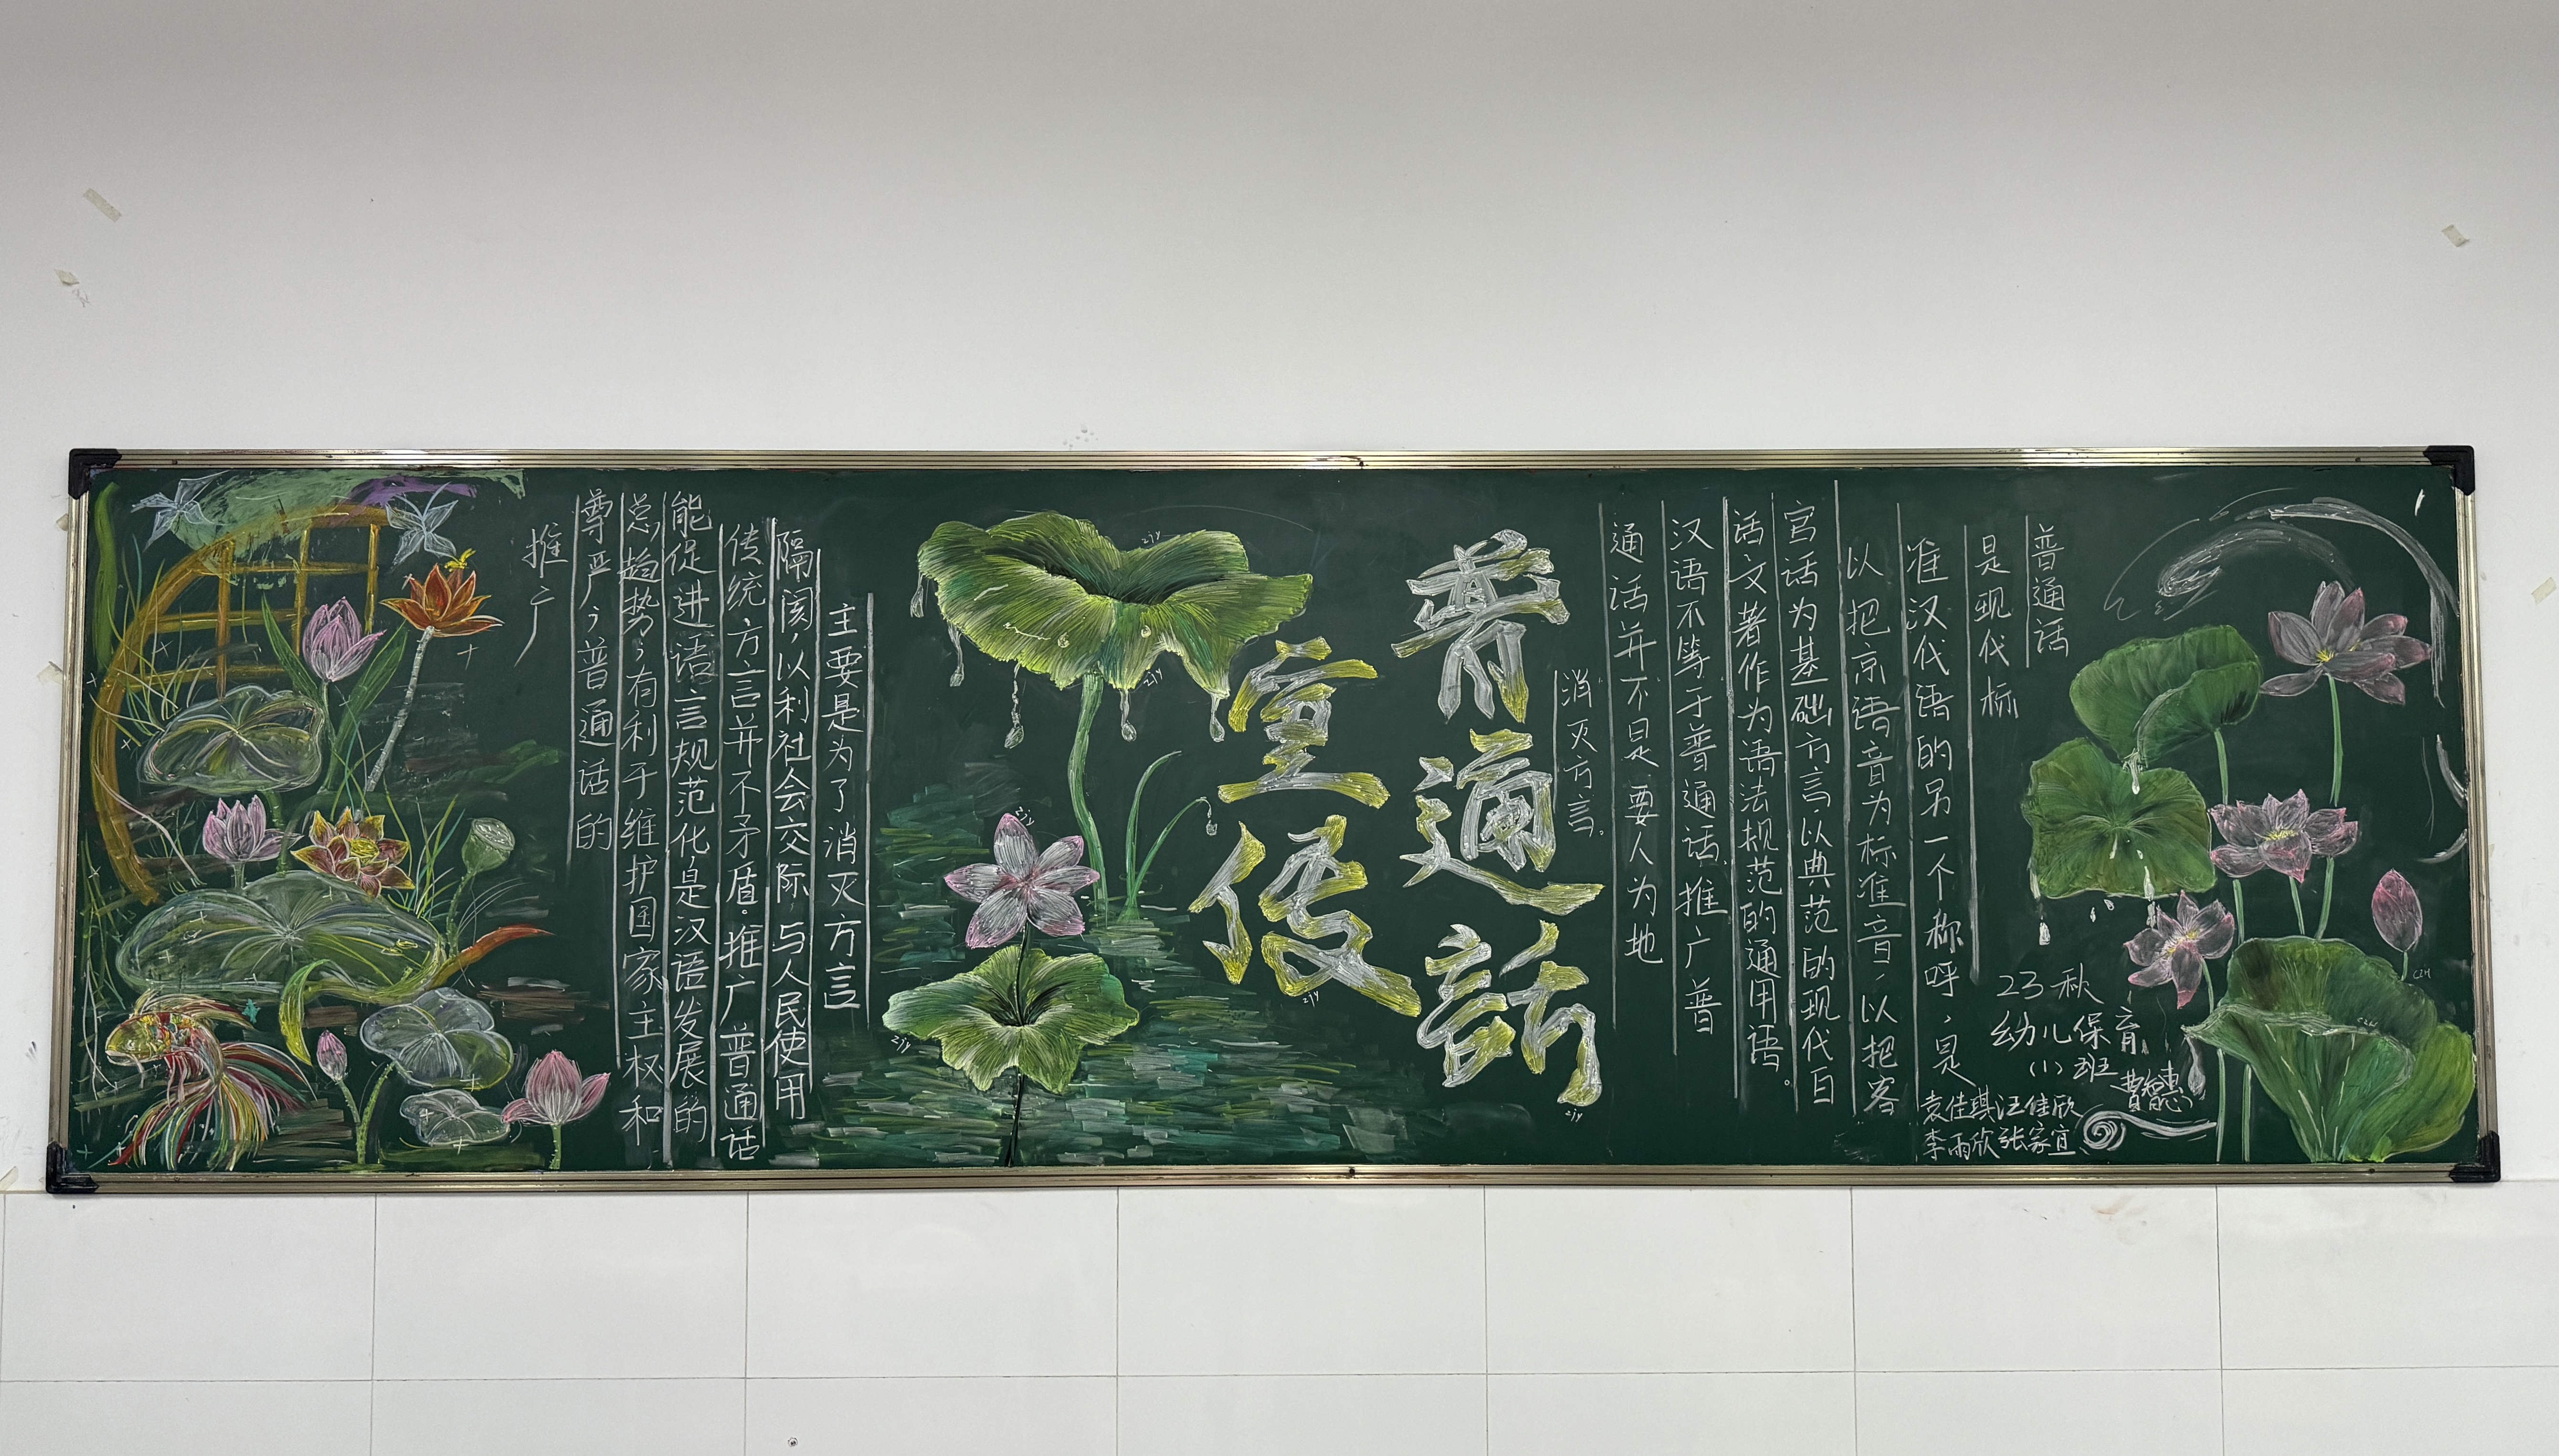 普通话
是现代标
准汉代语的另一个称呼，是
以把京语音为标准音，以把客
宫话为基础方言，以典范的现代白
话文著作为语法规范的通用语。
汉语不等于普通话，推广普
通话并不是要人为地
消灭方言。
普通話
宣传
主要是为了消灭方言
隔阂，以利社会交际，与人民使用
传统方言并不矛盾。推广普通话
能促进语言规范化是汉语发展的
总趋势；有利于维护国家主权和
尊严；普通话的
推广
23秋
幼儿保育
(1)班
袁佳琪汪佳欣
李雨欣张家宜
zjy
zjy
zjy
zjy
zjy
zjy